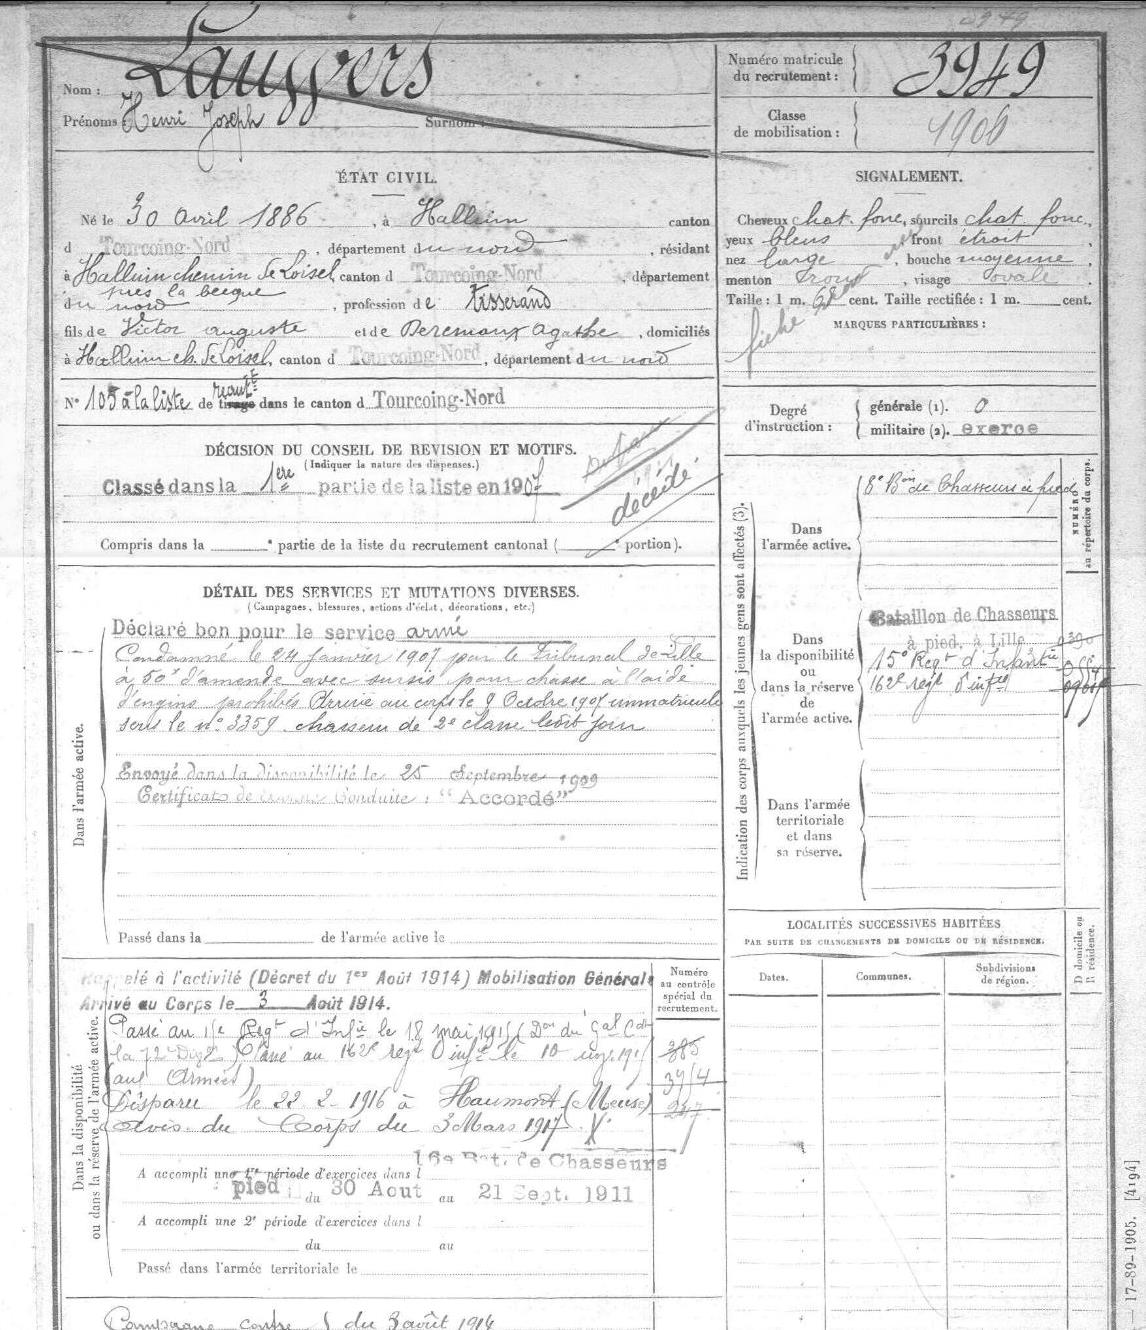 3949
Nom : Lauwers
Prénoms : Henri Joseph Surnom :
Numéro matricule
du recrutement : 3949
Classe
de mobilisation : 1906
ÉTAT CIVIL.
Né le 30 avril 1886, à Halluin canton
d Tourcoing-Nord, département du nord, résidant
à Halluin chemin de Loisel, canton d Tourcoing-Nord, département
près la becque
du nord, profession de tisserand
fils de Victor auguste et de Deremaux Agathe, domiciliés
à Halluin ch. de Loisel, canton d Tourcoing-Nord, département du nord
N° 105 à la liste de recent.te tirage dans le canton d Tourcoing-Nord
SIGNALEMENT.
Cheveux chat. fonc, sourcils chat. fonc,
yeux bleus front étroit,
nez large, bouche moyenne,
menton rond, visage ovale
Taille : 1 m. cent. Taille rectifiée : 1 m. cent.
fiche
MARQUES PARTICULIÈRES :
Degré
d'instruction :
générale (1). 0
militaire (2). exerce
DÉCISION DU CONSEIL DE REVISION ET MOTIFS.
(Indiquer la nature des dispenses.)
Classé dans la 1ère partie de la liste en 1907
décédé
Compris dans la ° partie de la liste du recrutement cantonal ( ° portion).
DÉTAIL DES SERVICES ET MUTATIONS DIVERSES.
(Campagnes, blessures, actions d'éclat, décorations, etc.)
Dans l'armée active.
Déclaré bon pour le service armé
Condamné le 24 Janvier 1907 par le Tribunal de Lille
à 50f d'amende avec sursis pour chasse à l'aide
d'engins prohibés Arrivé au corps le 9 Octobre 1907 immatriculé
sous le n° 3359 chasseur de 2e classe ledit jour
Envoyé dans la disponibilité le 25 Septembre 1909
Certificat de bonne Conduite : "Accordé"
Passé dans la de l'armée active le
Indication des corps auxquels les jeunes gens sont affectés (3).
NUMÉRO
au répertoire du corps.
Dans
l'armée active.
8e Bon de Chasseurs à pied
Dans
la disponibilité
ou
dans la réserve
de
l'armée active.
Bataillon de Chasseurs
à pied, à Lille
15e Regt d'Infantie
162e regt d'infie
Dans l'armée
territoriale
et dans
sa réserve.
LOCALITÉS SUCCESSIVES HABITÉES
PAR SUITE DE CHANGEMENTS DE DOMICILE OU DE RÉSIDENCE.
Dates.
Communes.
Subdivisions
de région.
D domicile ou
R résidence.
Dans la disponibilité
ou dans la réserve de l'armée active.
Rappelé à l'activité (Décret du 1er Août 1914) Mobilisation Générale
Arrivé au Corps le 3 Août 1914.
Numéro
au contrôle
spécial du
recrutement.
Passé au 15e Regt d'Infie le 18 mai 1915 (Don du Gal Cdt
la 72e Divon) Passé au 162e regt d'infie le 10
(aux Armées)
Disparu le 22 2 1916 à Haumont (Meuse)
avis du Corps du 3 Mars 1917
16e Bat. de Chasseurs
A accompli une 1re période d'exercices dans l
pied du 30 Aout au 21 Sept. 1911
A accompli une 2e période d'exercices dans l
du au
Passé dans l'armée territoriale le
Campagne contre du 3 août 1914
— 17-89-1905. [4194]